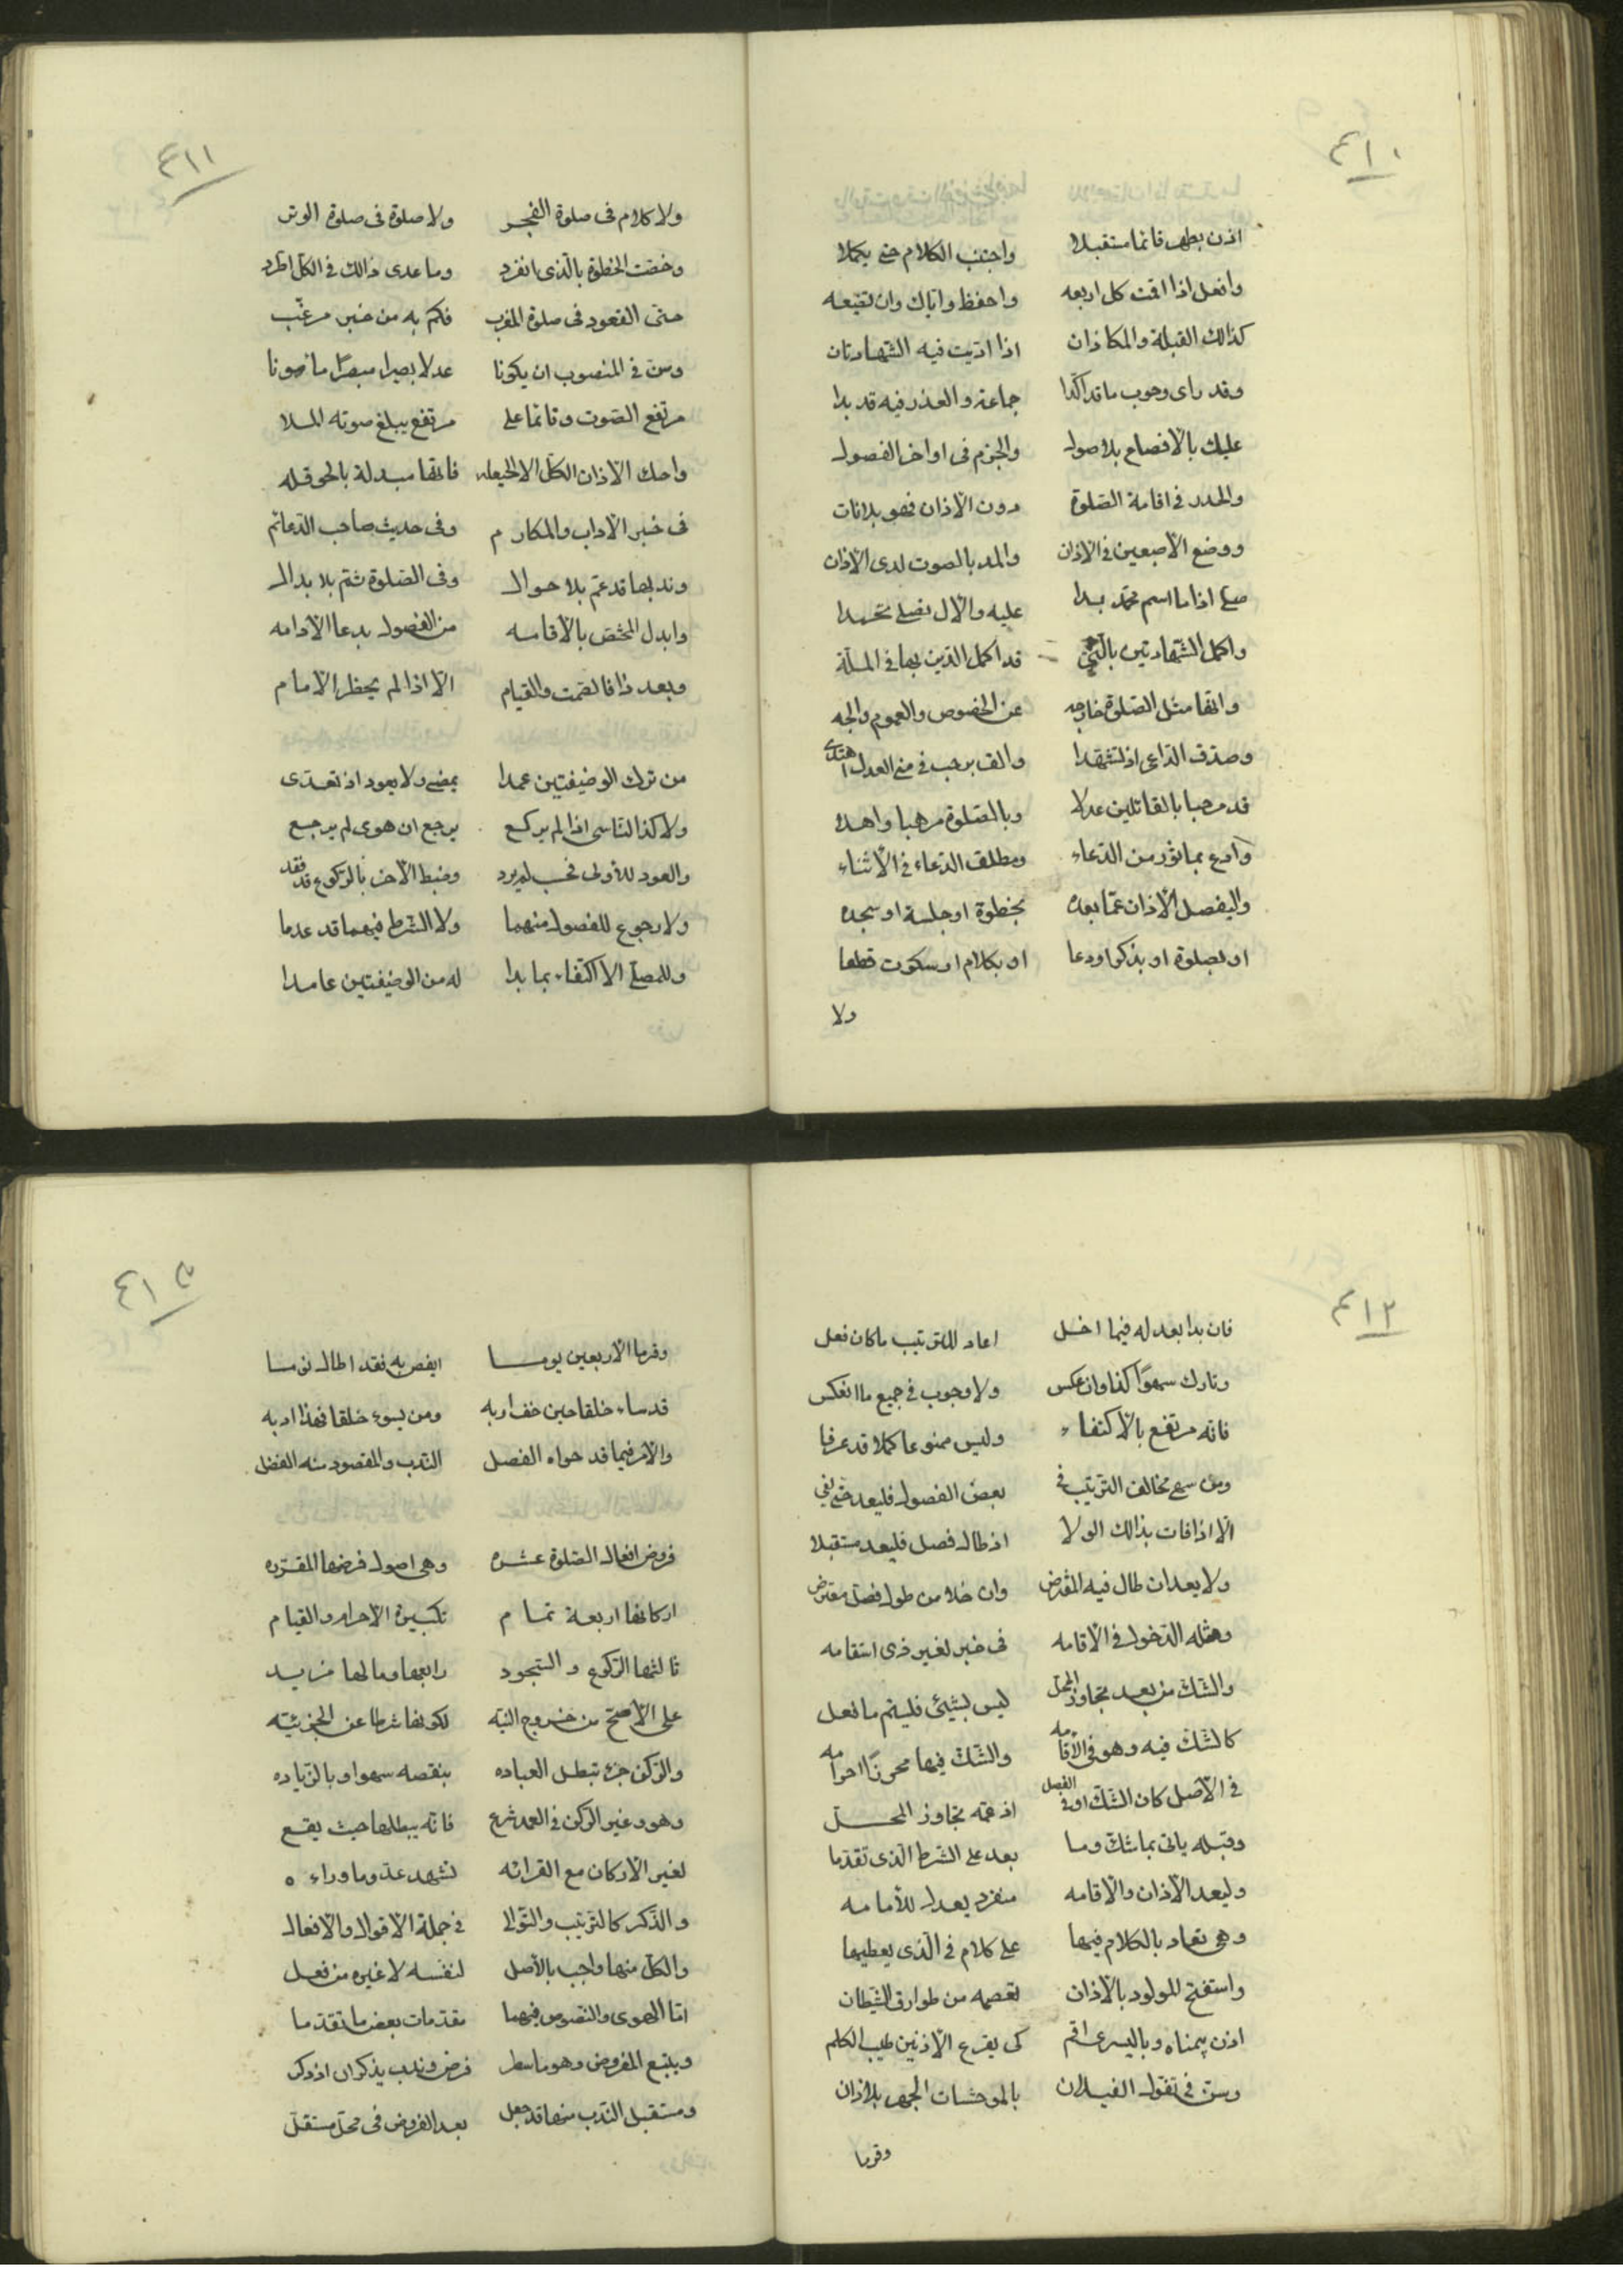 ٤١٠
اذن بطهر قائما مستقبلا واجتنب الكلام حتى يكملا
وافعل اذا اقمت كل اربعه واحفظ واياك وان تضيعه
كذالك القبلة والمكاذان اذا اتيت فيه الشهادتان
وقد راى وجوب ما قد اكدا جماعة والعذر فيه قد بدا
عليك بالافصاح بلا صول والجزم فى اواخر الفصول
والحدر فى اقامة الصلوة دون الاذان فهو بلا نات
ووضع الاصبعين فى الاذان والمد بالصوت لدى الاذان
صل اذا ما اسم محمد بدا عليه والال فصل تحمدا
واكمل الشهادتين بالتى قد اكمل الدين بها فى الملة
وانها مثل الصلوة خارجه عن الخصوص والعموم والجه
وصدق الداعى اذ تشهدا والف برحب فى منح العدل اهتدى
قد مرحبا بالقائلين عدلا وبالصلوة مرحبا واهلا
وادع بماثور من الدعاء ومطلق الدعاء فى الاثناء
واليفصل الاذان عما بعده بخطوة او جلسة او سجده
او بصلوة او بذكر او دعا او بكلام او سكوت قطعا
ولا
٤١١
ولا كلام فى صلوة الفجر ولا صلوة فى صلوة الوتر
وخصت الخطوة بالذى انفرد وما عدى ذالك فى الكل اطرد
حتى القعود فى صلوة المغرب فكم به من خبر مرغب
وسن فى المنصوب ان يكونا عدلا بصيرا مبصرا مأمونا
مرتفع الصوت وقائما على مرتفع يبلغ صوته الملا
واحك الاذان الكل الا الحيعله فانها مبدلة بالحوقله
فى خبر الاداب والمكارم وفى حديث صاحب الدعائم
وندبها قد عم بلا حوال وفى الصلوة ثم بلا بدال
وابدل المختص بالأقامه من الفصول بدعا الأدامه
وبعد ذا فالصمت والقيام الا اذا لم يحظر الامام
من ترك الوضيفتين عمدا يمضى ولا يعود اذ تعدى
ولا كذا الناسى اذا لم يركع يرجع ان هوى لم يرجع
والعود للأولى فحسب لم يرد وضبط الأخر بالركوع قد فقد
ولا رجوع للفصول منهما ولا الشرط فيهما قد عدما
وللمصلى الاكتفاء بما بدا له من الوضيفتين عامدا
٤١٢
فان بدا بعد له فيما اخل اعاد للترتيب ما كان فعل
وتارك سهوا كذا وان عكس ولا وجوب فى جميع ما انعكس
فانه مرتفع بالاكتفاء وليس ممنوعا كملا قد عرفا
ومن سمع تخالف الترتيب فى بعض الفصول فليعد حتى يفى
الا اذا فات بذالك الولا اذ طال فصل فليعد مستقبلا
ولا يعد ان طال فيه المفترض وان خلا من طول فصل مفترض
ومثله الدخول فى الاقامه فى خبر لغير ذى استقامه
والشك من بعد تجاوز المحل ليس بشيئ فليتم ما فعل
كالشك فيه وهو فى الأقامه والشك فيها محرزا احرامه
فى الاصل كان الشك او فى الفصل اذ عمه تجاوز المحل
وقبله ياتى بما شك وما بعد على الشرط الذى تقدما
وليعد الاذان والاقامه منفرد يعدل للأمامه
وهى تعاد بالكلام فيها على كلام فى الذى يعطيها
واستفتح للمولود بالاذان تعصمه من طوارق الشيطان
اذن بيمناه وباليسرى اقم كى يقرع الاذنين طيب الكلم
وسن فى تغول الغيلان بالموحشات الجهر بلاذان
وقرما
٤١٥
وقرما الاربعين يوما ايفص به فقد اطال نوما
قد ساء خلقا حين خف اربه ومن يسوء خلقا فهذا ادبه
والامر فيما قد حواه الفصل الندب والمقصود منه الفضل
فروض افعال الصلوة عشره وهى اصول فرضها المقرره
اركانها اربعة تمام تكبيرة الاحرام والقيام
ثالثها الركوع والسجود رابعها وما لها مزيد
على الأصح من خروج النيه لكونها شرطا عن الجزئيه
والركن جزء تبطل العباده بنقصه سهوا وبالزياده
وهو وغير الركن فى العمد شرع فانه يبطلها حيث يقع
لغير الاركان مع القرائه تشهد عد وما وراءه
والذكر كالترتيب والتوالى فى جملة الاقوال والافعال
والكل منها واجب بالأصل لنفسه لا غيره من فعل
اما الهوى والنهوض فهما مقدمات بعض ما تقدما
ويتبع المفروض وهو ما سطر فرض وندب يذكران اذ ذكر
ومستقبل الندب منها قد جعل بعد الفروض فى محل مستقل